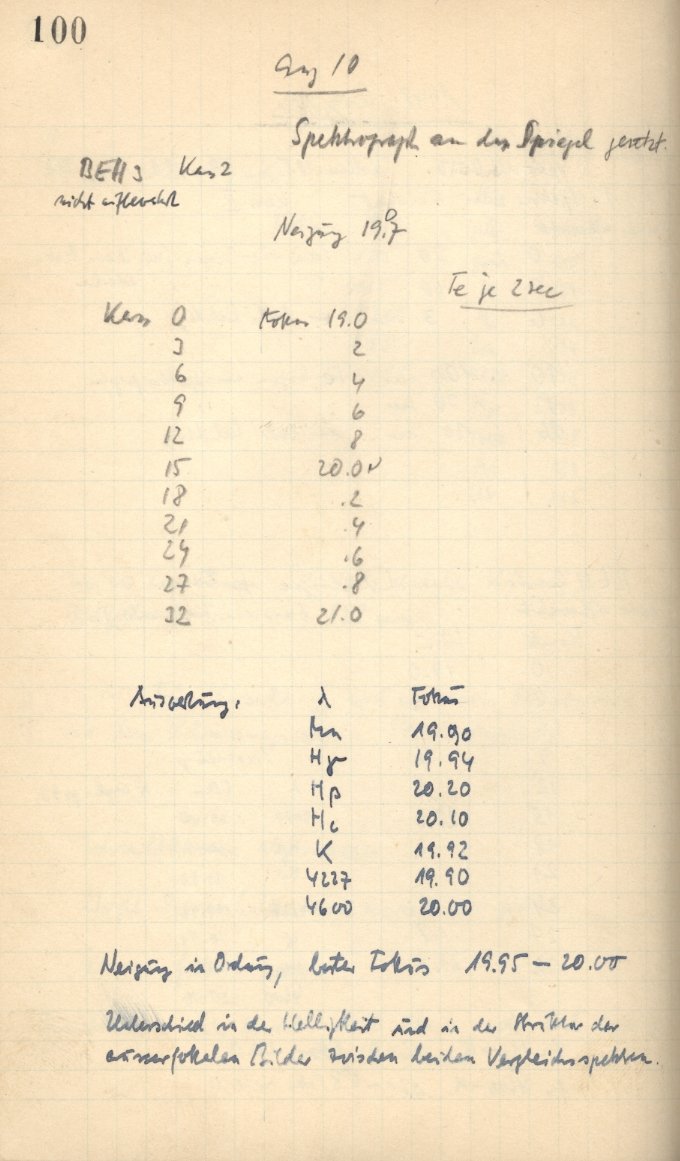 100
Aug 10
Spektrograph an den Spiegel gesetzt.
BEH 3 Kass 2
nicht aufbewahrt
Neigung 19.°7
Te je 2 sec
Kass 0 Fokus 19.0
3 2
6 4
9 6
12 8
15 20.0
18 .2
21 .4
24 .6
27 .8
32 21.0
Auswertung: λ Fokus
Mn 19.90
Hγ 19.94
Hβ 20.20
20.10
K 19.92
4227 19.90
4600 20.00
Neigung in Ordnung, bester Fokus 19.95 – 20.00
Unterschied in der Helligkeit und in der Struktur der
ausserfokalen Bilder zwischen beiden Vergleichsspektren.